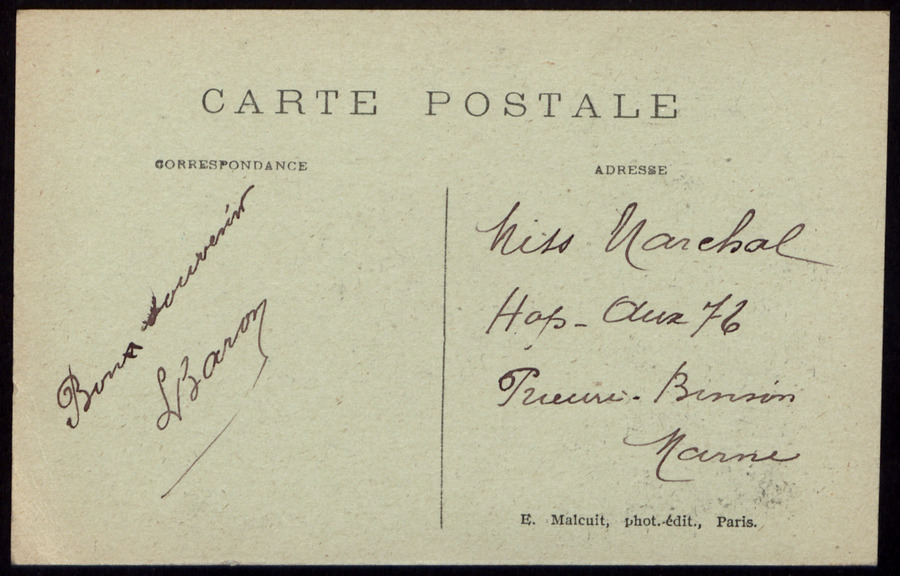 CARTE POSTALE
CORRESPONDANCE
Bon souvenir
LBaron
ADRESSE
Miss Marchal
Hop- Aux 76
Prieuré- Binson
Marne
E. Malcuit, phot.-édit., Paris.